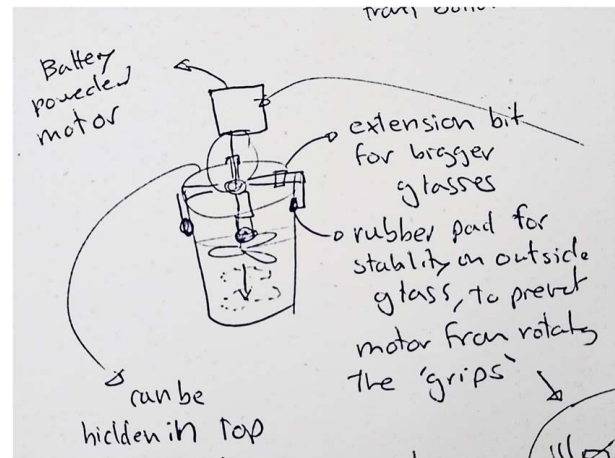 from
Battery
poweded
motor
extension bit
for bigger
glasses
rubber pad for
stablity on outside
glass, to prevet
motor from rotatg
the 'grips'
can be
hidden in top